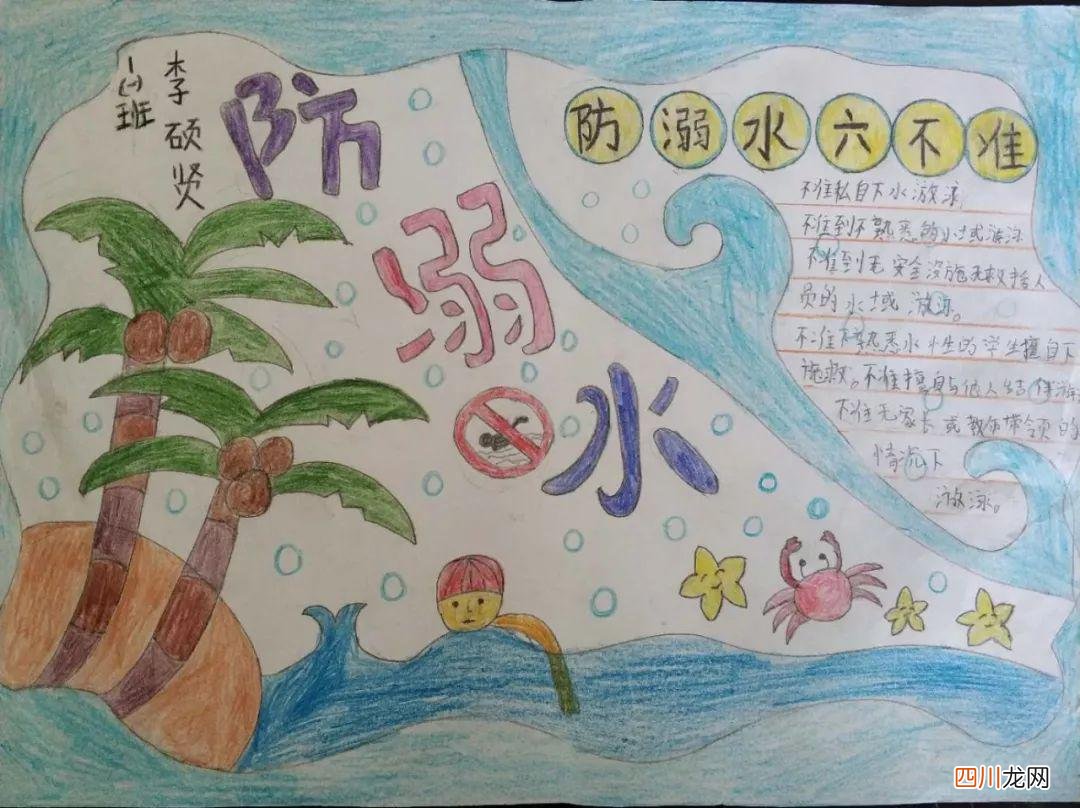 一(一)班
李硕贤
防溺水
防溺水六不准
不准私自下水游泳
不准到不熟悉的水域游泳
不准到无安全设施无救人
员的水域游泳。
不准不熟悉水性的学生擅自下
施救。不准擅自与他人结伴游
不准无家长或教师带领的
情况下
游泳。
四川龙网